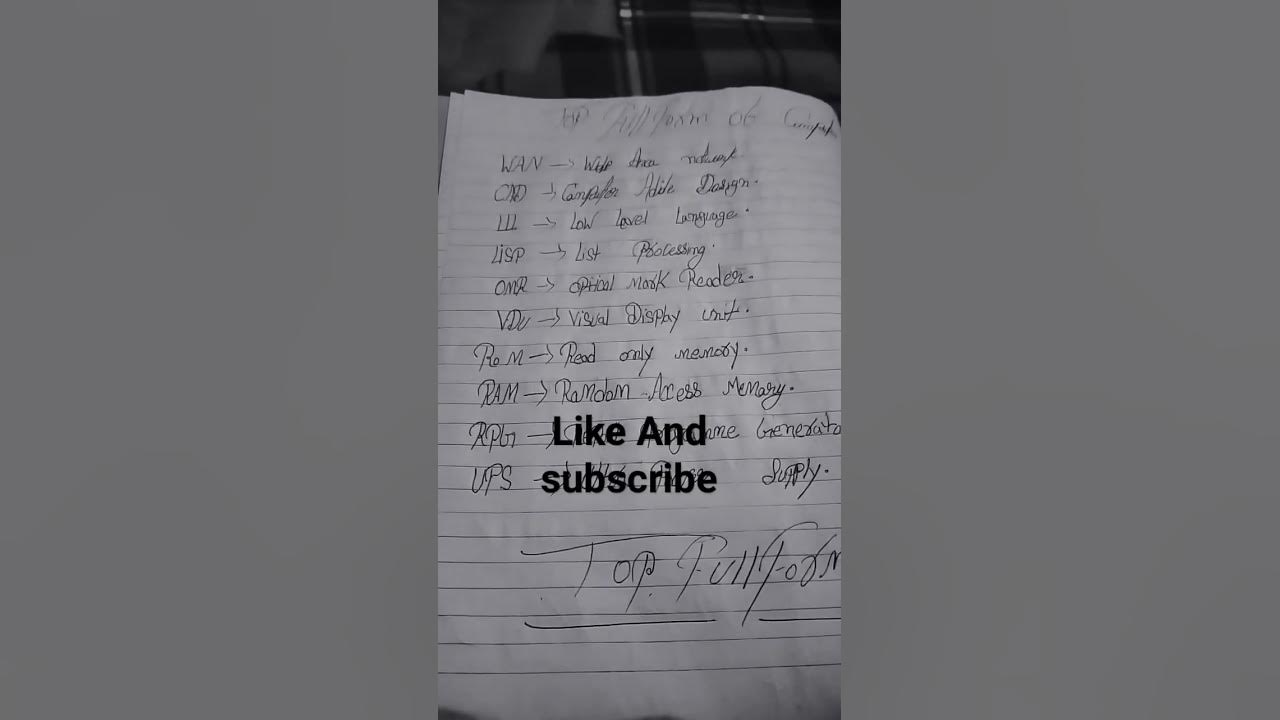 Top Full Form Of Comput
WAN → Wide Area network.
CAD → Computer Adide Design.
LLL → Low Level Language.
LISP → List Processing.
OMR → Optical Mark Reader.
VDU → Visual Display unit.
RoM → Read only memory.
RAM → Random Access Memory.
RPG → Programme Generato
Like And
UPS → Supply.
subscribe
Top Full Form